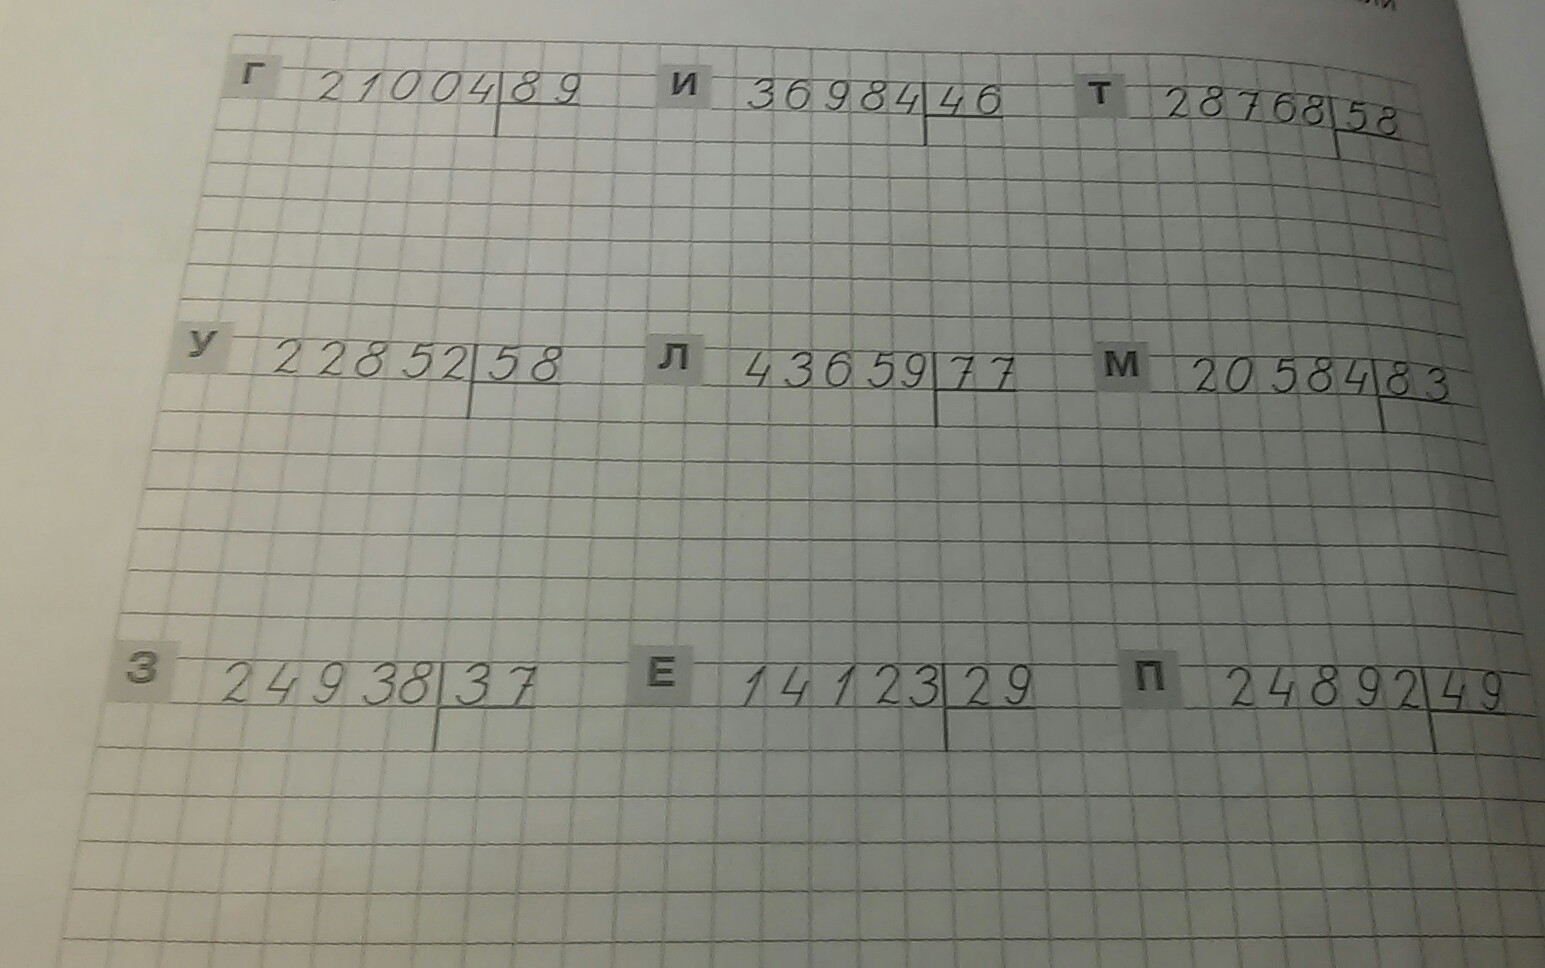 Г 21004 89 И 36984 46 Т 28768 58
У 22852 58 Л 43659 77 М 20584 83
З 24938 37 Е 14123 29 П 24892 49